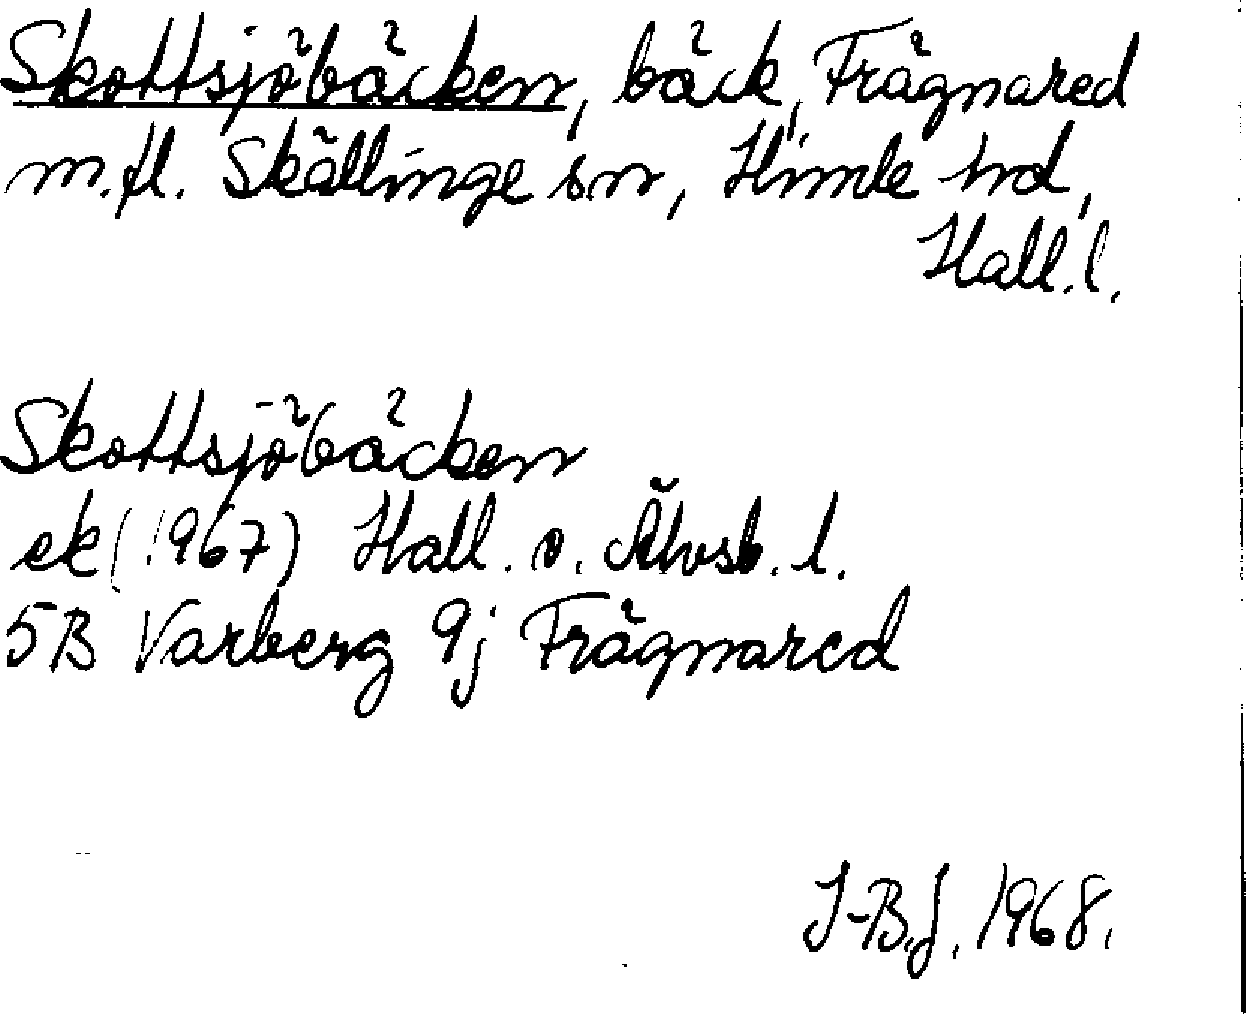 Skottsjöbäcken, bäck, Frägnared
m.fl. Skällinge sn, Himle hd,
Hall.l.
Skottsjöbäcken
ek (1967) Hall. o. Älvsb. l.
5B Varberg 9j Frägnared
I-B.J. 1968.